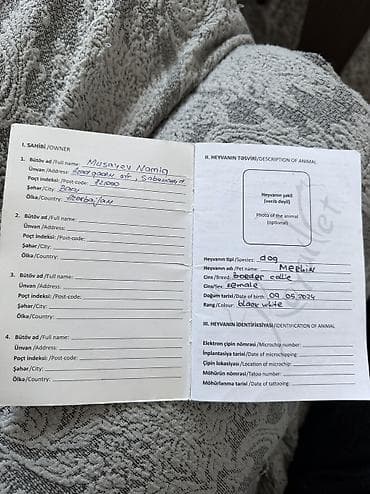 I. SAHİBİ /OWNER
1. Bütöv ad /Full name: Musayev Namiq
Ünvan /Address:
Poçt indeksi /Post-code:
Şəhər /City: Bakı
Ölkə /Country: Azərbaijan
2. Bütöv ad /Full name:
Ünvan /Address:
Poçt indeksi /Post-code:
Şəhər /City:
Ölkə /Country:
3. Bütöv ad /Full name:
Ünvan /Address:
Poçt indeksi /Post-code:
Şəhər /City:
Ölkə /Country:
4. Bütöv ad /Full name:
Ünvan /Address:
Poçt indeksi /Post-code:
Şəhər /City:
Ölkə /Country:
II. HEYVANIN TƏSVİRİ /DESCRIPTION OF ANIMAL
Heyvanın şəkli
(vacib deyil)
Photo of the animal
(optional)
Heyvanın tipi /Species: dog
Heyvanın adı /Pet name:
Cins /Breed: border collie
Cins /Sex: Female
Doğum tarixi /Date of birth: 09.05.2024
Rəng /Colour: black white
III. HEYVANIN İDENTİFİKSİYASI /IDENTIFICATION OF ANIMAL
Elektron çipin nömrəsi /Microchip number:
İmplantasiya tarixi /Date of microchipping:
Çipin lokasiyası /Location of microchip:
Möhürün nömrəsi /Tatoo number:
Möhürlənmə tarixi /Date of tattooing: